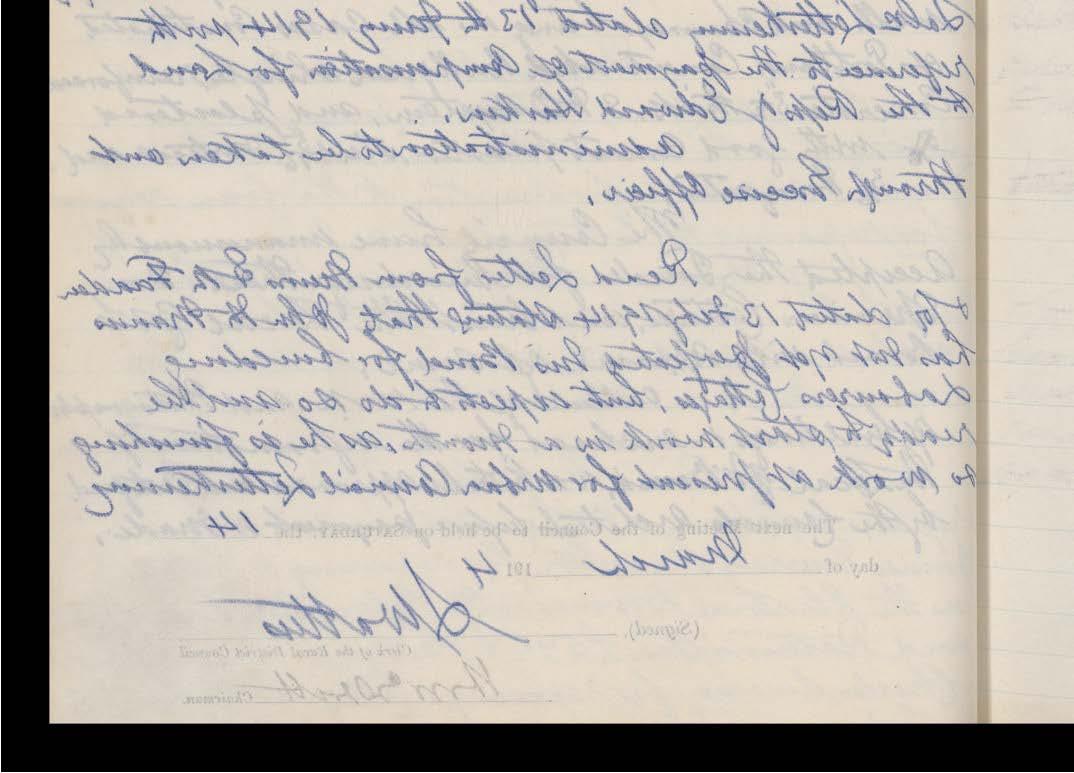 Letterkenny dated 13th Jany 1914 with
reference to the payment of Compensation for land
to the Reps of Edward Harkin.
administration to be taken out
through Excise Officer.
Read Letter from Messrs
dated 13 Feby 1914 stating that John
has not yet perfected his Bond for building
Labourers Cottages, but expects to do so and be
ready to start work in a month, as he is finishing
a work at present for Urban Council Letterkenny
The next Meeting of the Council to be held on SATURDAY, the 14
day of March 1914
(Signed),
Clerk of the Rural District Council
Chairman.